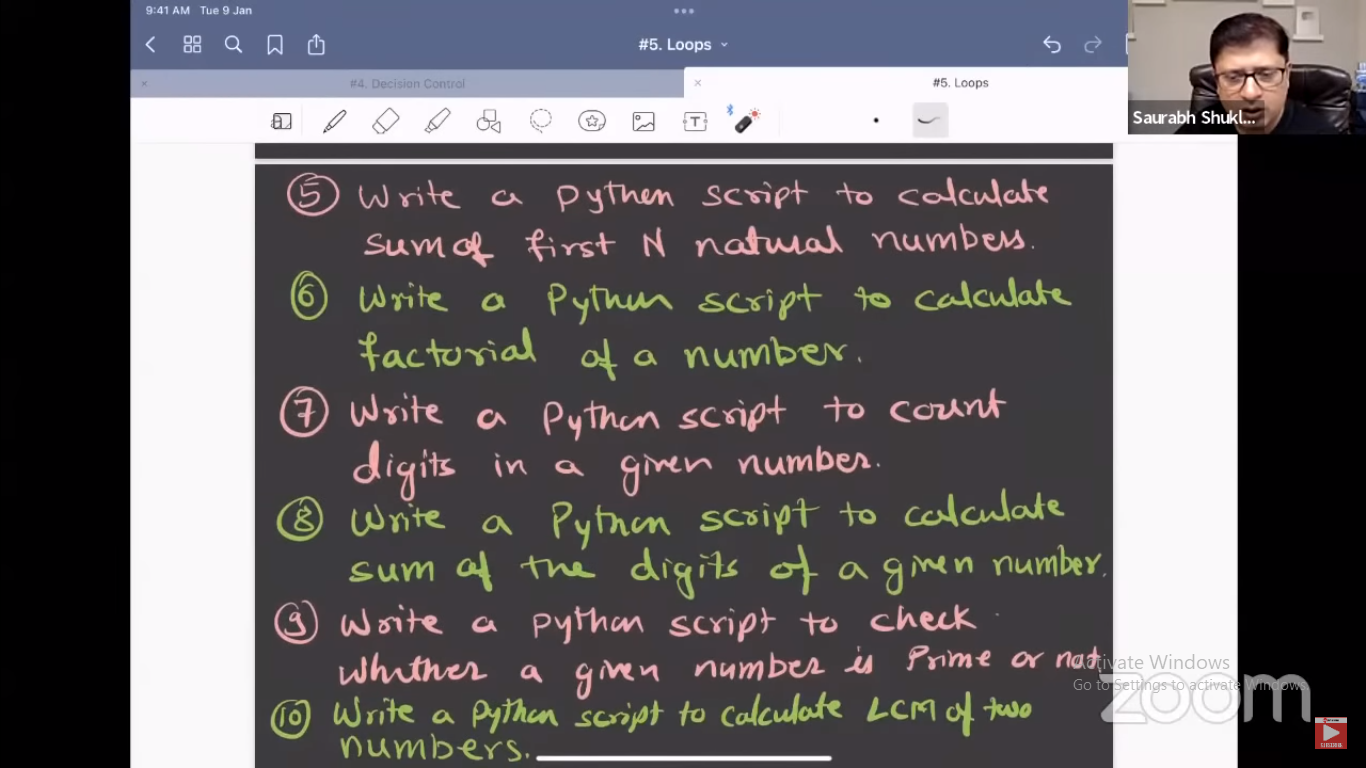 9:41 AM Tue 9 Jan
#5. Loops
#4. Decision Control
#5. Loops
Saurabh Shukl...
⑤ Write a Python script to calculate
sum of first N natural numbers.
⑥ Write a Python script to calculate
factorial of a number.
⑦ Write a Python script to count
digits in a given number.
⑧ Write a Python script to calculate
sum of the digits of a given number.
⑨ Write a Python script to check
whether a given number is Prime or not
⑩ Write a Python script to calculate LCM of two
numbers.
Activate Windows
Go to Settings to activate Windows.
zoom